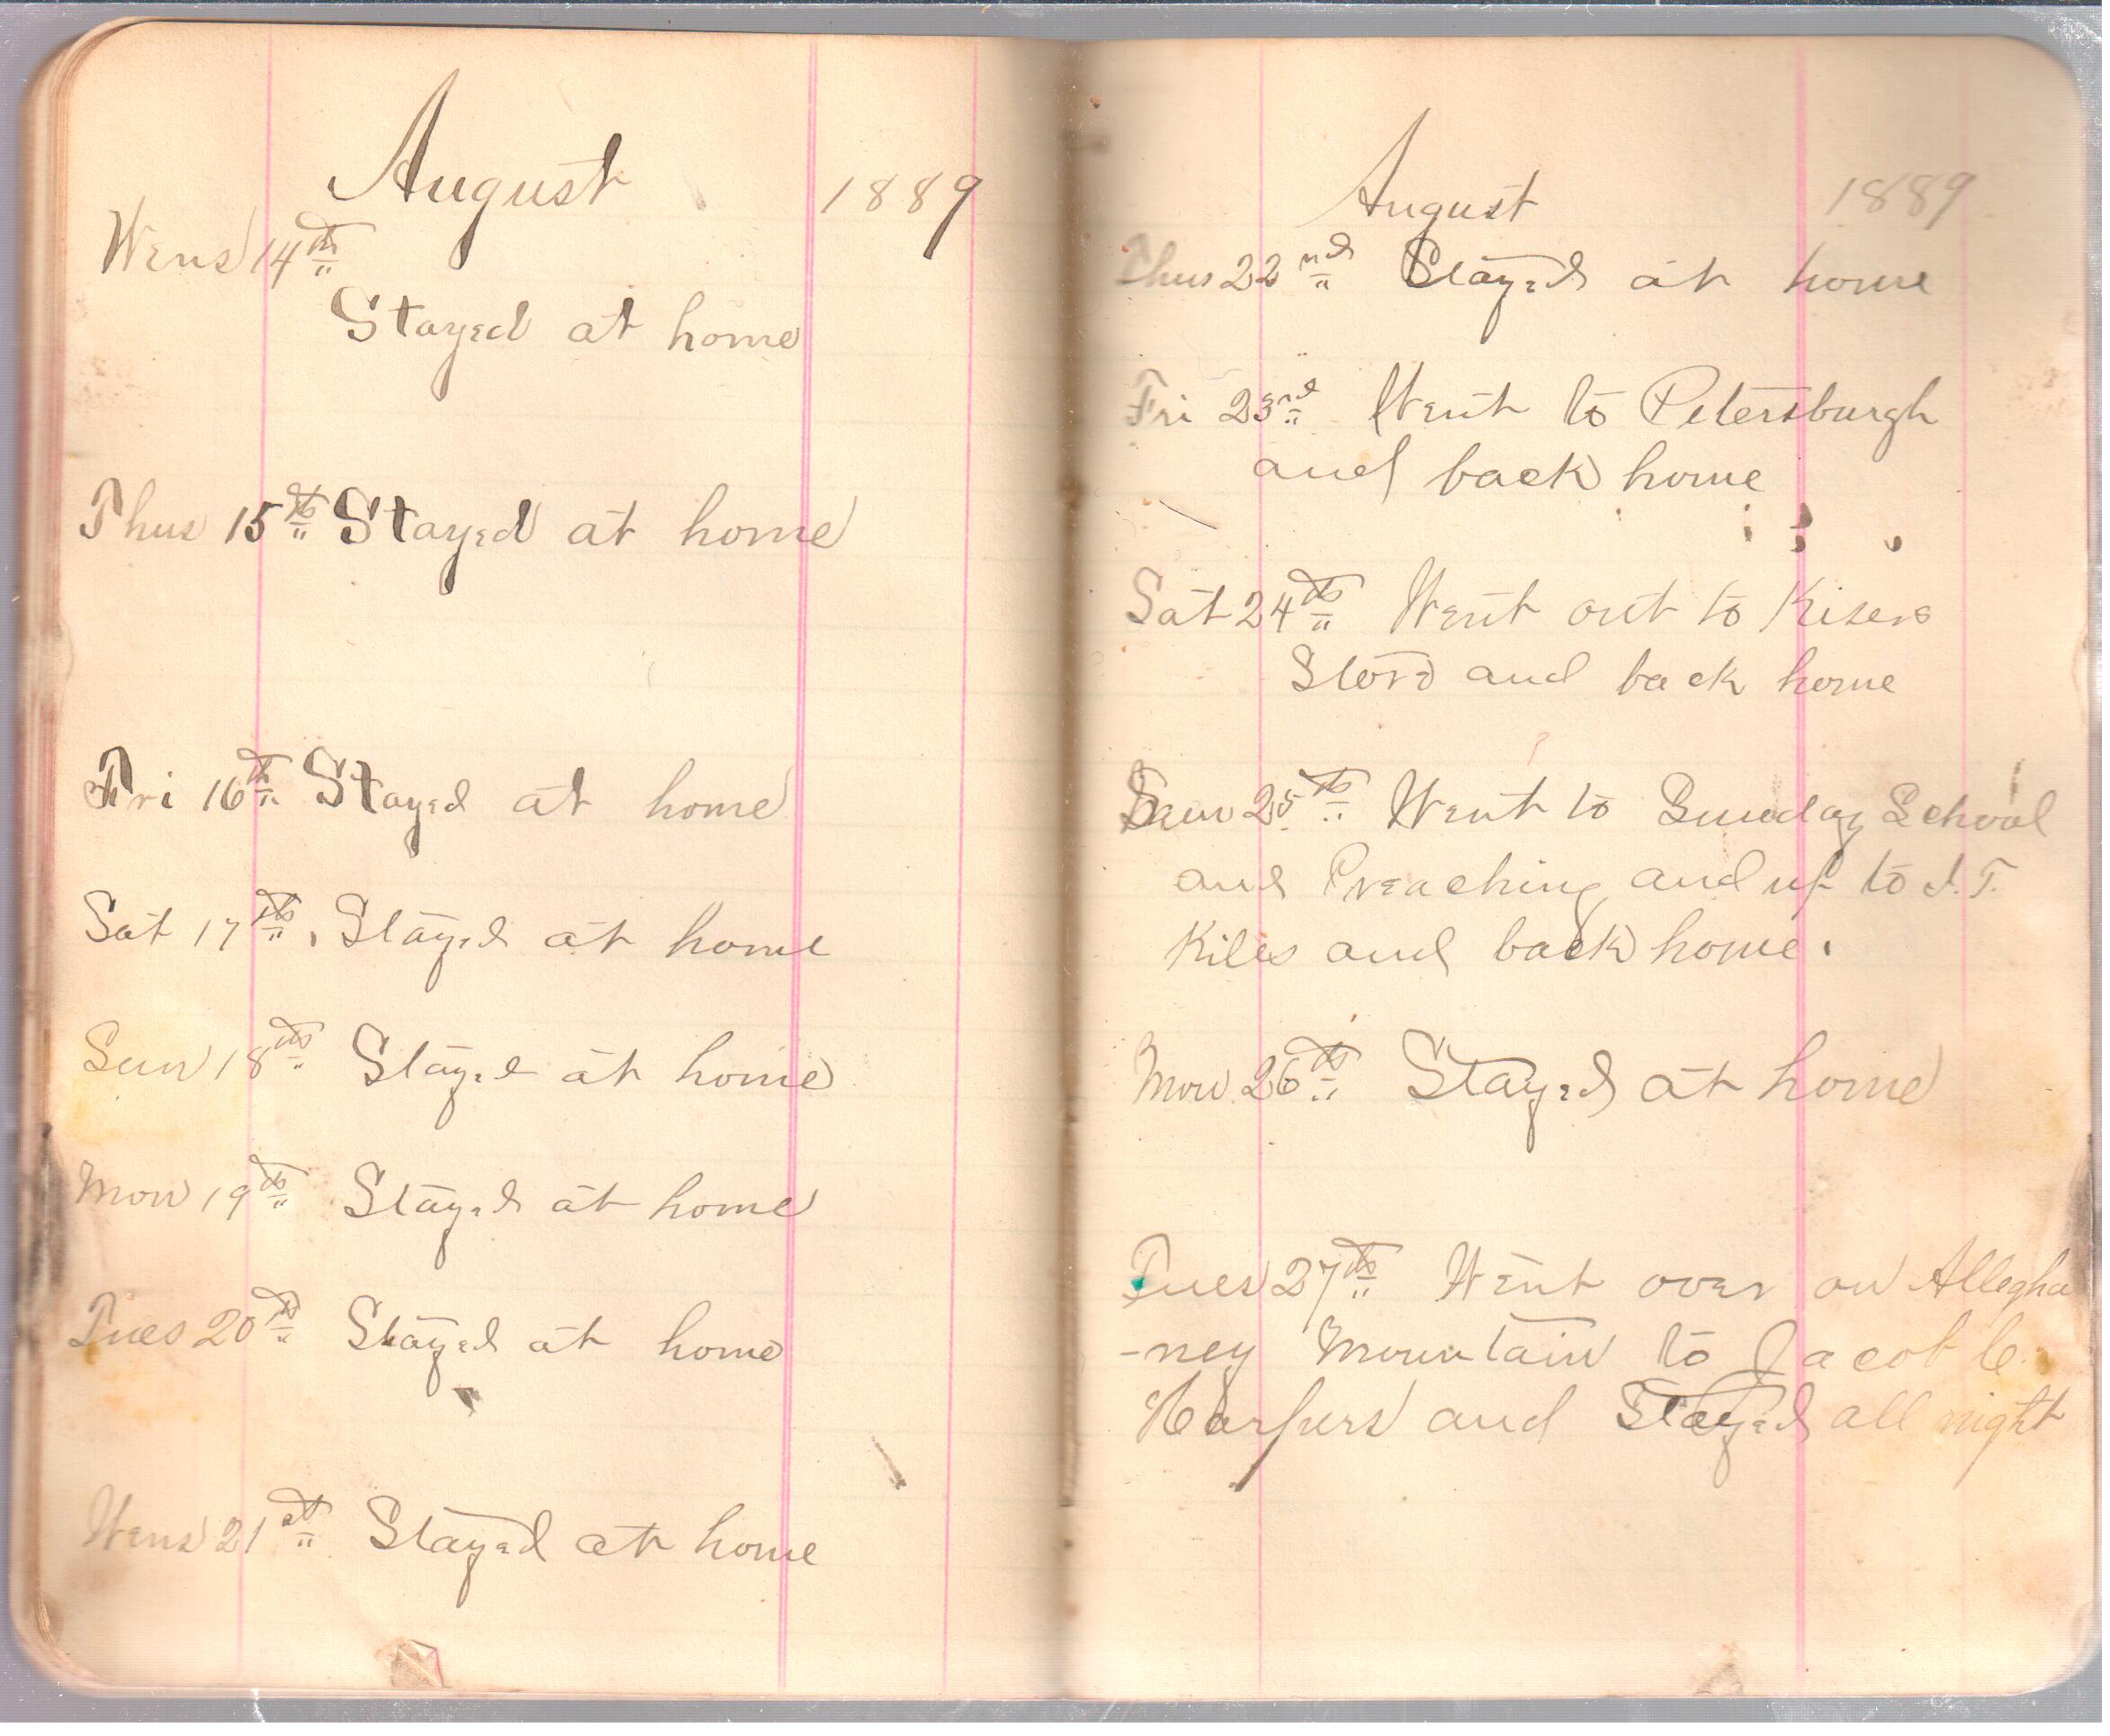 August 1889
Wens 14th
Stayed at home
Thus 15th Stayed at home
Fri 16th Stayed at home
Sat 17th. Stayed at home
Sun 18th Stayed at home
Mon 19th Stayed at home
Tues 20th Stayed at home
Wens 21st Stayed at home
August 1889
Thus 22nd Stayed at home
Fri 23rd Went to Petersburgh
and back home
Sat 24th Went out to Kisers
Store and back home
Sun 25th Went to Sunday School
and Preaching and up to I. T.
Kiles and back home.
Mon 26th Stayed at home
Tues 27th Went over on Allegha
-ney Mountain to Jacob C.
Harpers and Stayed all night